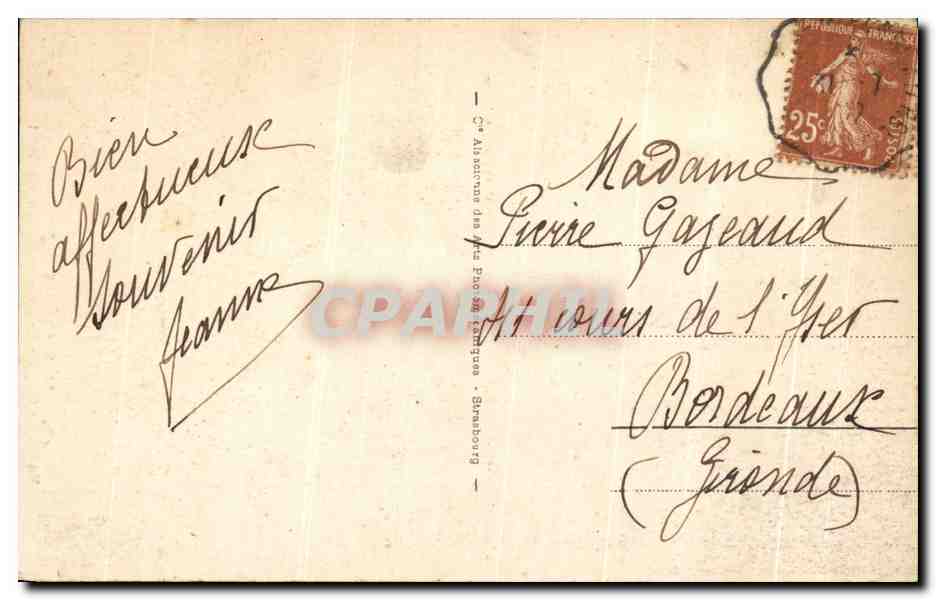 Bien
affectueux
souvenir
Jeanne
— Cie Alsacienne des Arts Photomécaniques - Strasbourg —
REPUBLIQUE FRANÇAISE
25c
Madame
Pierre Gazeaud
41 cours de l'Yser
Bordeaux
(Gironde)
CPAPHIL